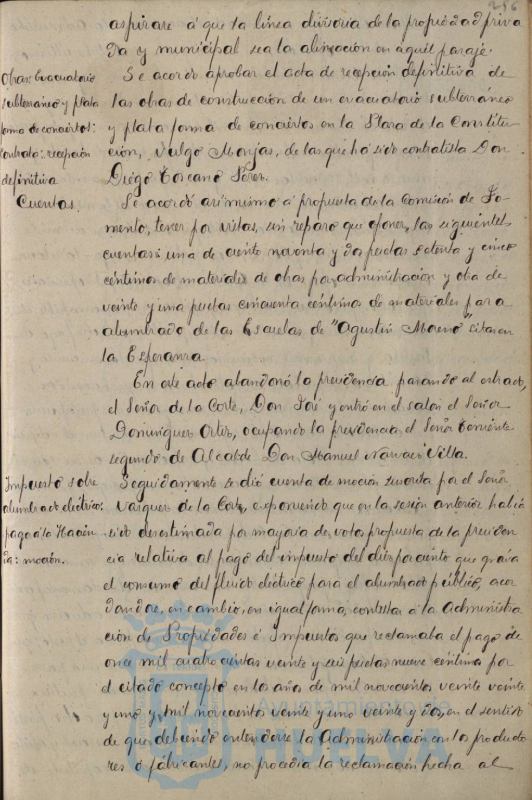 256
aspirare á que la línea divisoria de la propiedad priva
da y municipal sea la alineación en aquél paraje.
Obras: Evacuatorio
subterráneo y plata
forma de conciertos:
contrata: recepción
definitiva
Se acordó aprobar el acta de recepción definitiva de
las obras de construcción de un evacuatorio subterráneo
y plataforma de conciertos en la Plaza de la Constitu-
ción, vulgo Monjas, de las que ha sido contratista Don
Diego Toscano Pérez.
Cuentas.
Se acordó asimismo á propuesta de la Comisión de Fo-
mento, tener por vistas, sin reparo que oponer, las siguientes
cuentas: una de ciento noventa y dos pesetas setenta y cinco
céntimos de materiales de obras por administración y otra de
veinte y una pesetas cincuenta céntimos de materiales para
alumbrado de las Escuelas de "Agustín Moreno" sitas en
la Esperanza.
En este acto abandonó la presidencia pasando al estrado,
el Señor de la Corte, Don José y entró en el salón el Señor
Domínguez Ortiz, ocupando la presidencia el Señor Teniente
segundo de Alcalde Don Manuel Narváez Villa.
Impuesto sobre
alumbrado eléctrico:
pago á la Hacien
da: moción.
Seguidamente se dió cuenta de moción suscrita por el Señor
Vázquez de la Corte, exponiendo que en la sesión anterior había
sido desestimada por mayoría de votos propuesta de la presiden
cia relativa al pago del impuesto del diez por ciento que grava
el consumo del fluido eléctrico para el alumbrado público, acor
dandose, en cambio, en igual forma, contestar á la Administra
ción de Propiedades é Impuestos que reclamaba el pago de
once mil cuatrocientas veinte y seis pesetas nueve céntimos por
el citado concepto en los años de mil novecientos veinte veinte
y uno y mil novecientos veinte y uno veinte y dos, en el sentido
de que debiendo entenderse la Administración con los producto
res ó fabricantes, no procedía la reclamación hecha al
Ayuntamiento de
HUELVA